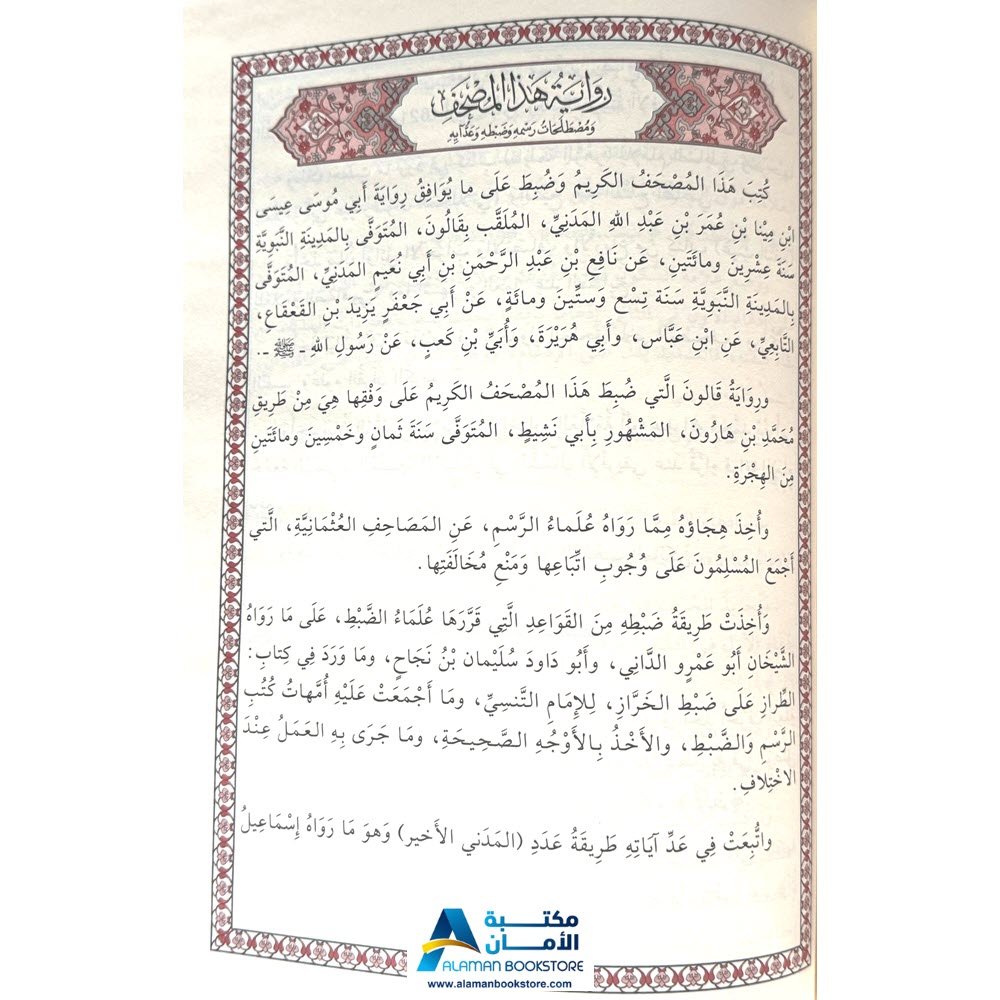 رِوَايَةُ هَذَا المُصْحَفِ
وَمُصْطَلَحَاتُ رَسْمِهِ وَضَبْطِهِ وَعَدِّ آيِهِ
كُتِبَ هَذَا المُصْحَفُ الكَرِيمُ وَضُبِطَ عَلَى ما يُوَافِقُ رِوَايَةَ أَبِي مُوسَى عِيسَى
ابْنِ مِينَا بْنِ عُمَرَ بْنِ عَبْدِ اللهِ المَدَنِيِّ، المُلَقَّبِ بِقَالُونَ، المُتَوَفَّى بِالمَدِينَةِ النَّبَوِيَّةِ
سَنَةَ عِشْرِينَ ومائَتَينِ، عَن نَافِعِ بْنِ عَبْدِ الرَّحْمَنِ بْنِ أَبِي نُعَيمٍ المَدَنِيِّ، المُتَوَفَّى
بِالمَدِينَةِ النَّبَوِيَّةِ سَنَةَ تِسْعٍ وَسِتِّينَ ومائَةٍ، عَنْ أَبِي جَعْفَرٍ يَزِيدَ بْنِ القَعْقَاعِ،
التَّابِعِيِّ، عَنِ ابْنِ عَبَّاس، وأَبِي هُرَيْرَةَ، وَأُبَيِّ بْنِ كَعبٍ، عَنْ رَسُولِ اللهِ ـ ﷺ ـ.
ورِوَايَةُ قالونَ الَّتي ضُبِطَ هَذَا المُصْحَفُ الكَرِيمُ عَلَى وَفْقِها هِيَ مِنْ طَرِيقِ
مُحَمَّدِ بْنِ هَارُونَ، المَشْهُورِ بِأَبي نَشِيطٍ، المُتَوَفَّى سَنَةَ ثَمانٍ وخَمْسِينَ ومائَتَينِ
مِنَ الهِجْرَةِ.
وأُخِذَ هِجَاؤهُ مِمَّا رَوَاهُ عُلَماءُ الرَّسْمِ، عَنِ المَصَاحِفِ العُثْمَانِيَّةِ، الَّتي
أَجْمَعَ المُسْلِمُونَ عَلَى وُجُوبِ اتِّبَاعِها وَمَنْعِ مُخَالَفَتِها.
وَأُخِذَتْ طَرِيقَةُ ضَبْطِهِ مِنَ القَوَاعِدِ الَّتِي قَرَّرَهَا عُلَمَاءُ الضَّبْطِ، عَلَى مَا رَوَاهُ
الشَّيْخَانِ أَبُو عَمْرٍو الدَّانِي، وَأَبُو دَاودَ سُلَيْمان بْنُ نَجَاحٍ، ومَا وَرَدَ فِي كِتابِ:
الطِّرازِ عَلَى ضَبْطِ الخَرَّازِ، لِلإِمَامِ التَّنسِيِّ، ومَا أَجْمَعَتْ عَلَيْهِ أُمَّهاتُ كُتُبِ
الرَّسْمِ وَالضَّبْطِ، والأَخْذُ بِالأَوْجُهِ الصَّحِيحَةِ، ومَا جَرَى بِهِ العَمَلُ عِنْدَ
الاخْتِلافِ.
واتُّبِعَتْ فِي عَدِّ آيَاتِهِ طَرِيقَةُ عَدَدِ (المَدَني الأَخير) وَهوَ مَا رَوَاهُ إِسْمَاعِيلُ
مكتبة
الأمان
ALAMAN BOOKSTORE
www.alamanbookstore.com